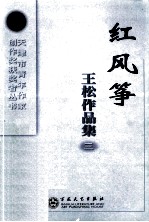 红风筝
王松作品集
三
天津市青年作家
创作奖获奖者丛书
百花文艺出版社